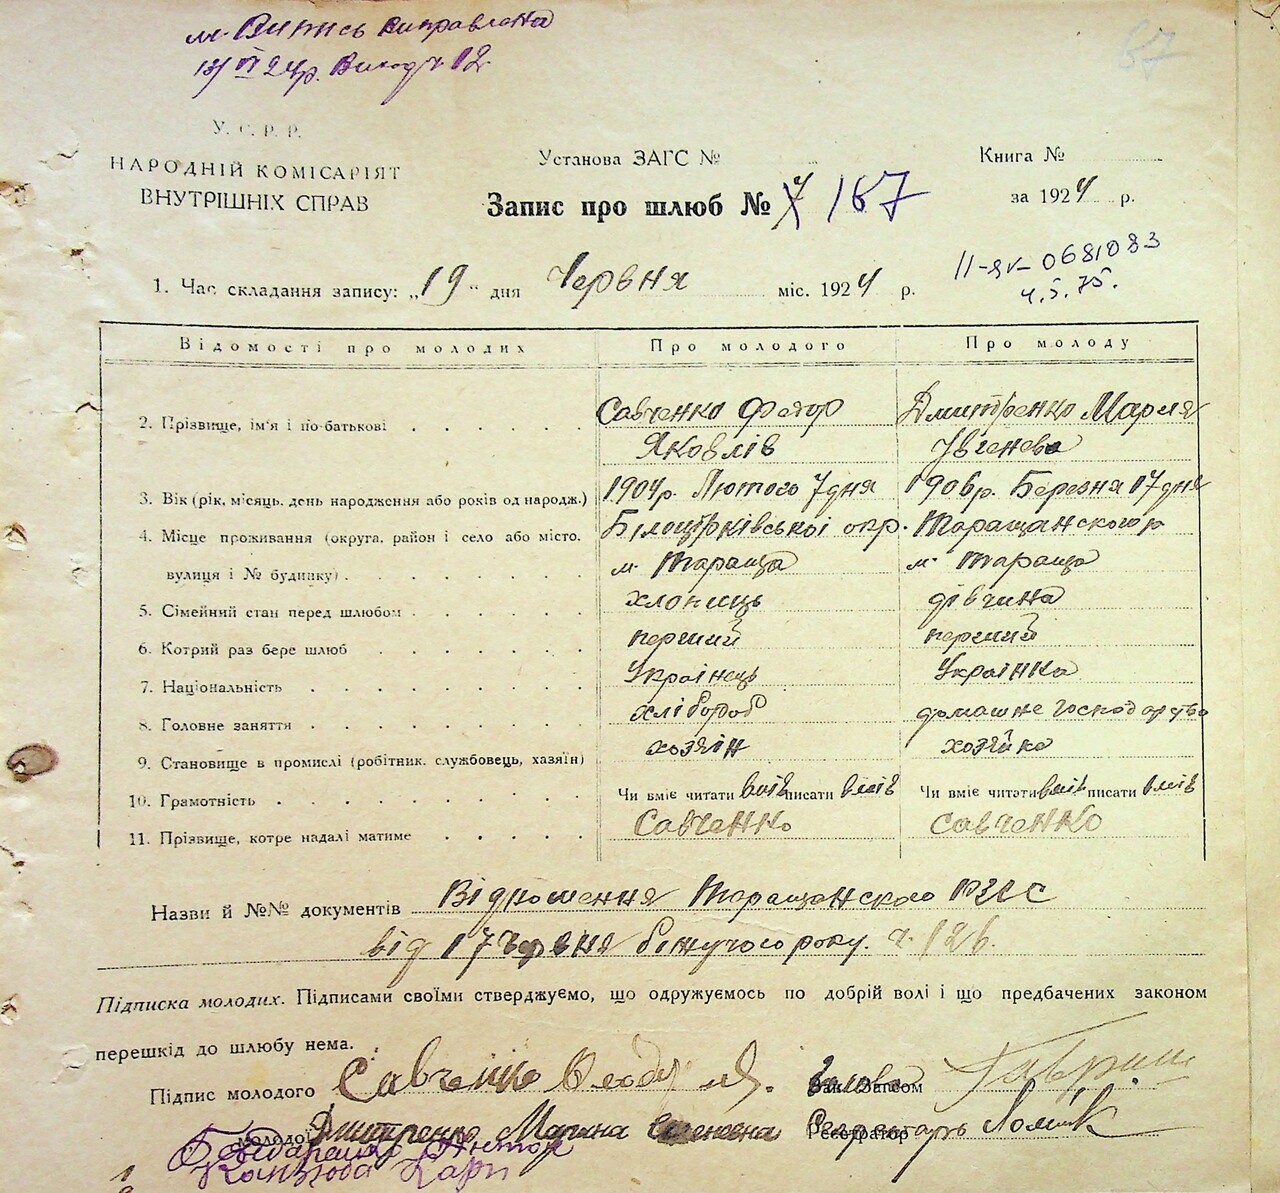 м. Випись виправлена
67
У. С. Р. Р.
НАРОДНІЙ КОМІСАРІЯТ
ВНУТРІШНІХ СПРАВ
Установа ЗАГС №
Запис про шлюб № 167
Книга №
за 1924 р.
II-ЯУ-0681083
4.5.75.
1. Час складання запису: „19" дня Червня міс. 1924 р.
Відомості про молодих Про молодого Про молоду
2. Прізвище, ім'я і по-батькові Савченко Федор Яковлів Дмитренко Мария
3. Вік (рік, місяць, день народження або років од народж.) 1904р. Лютого 7 дня 1906р. Березня 17 дня
4. Місце проживання (округа, район і село або місто, Білоцерківської окр. Таращанского р
вулиця і № будинку) м. Тараща м. Тараща
5. Сімейний стан перед шлюбом хлопець дівчина
6. Котрий раз бере шлюб перший перший
7. Національність Українець Українка
8. Головне заняття хлібороб домашне господарство
9. Становище в промислі (робітник, службовець, хазяїн) хозяін хозяйка
10. Грамотність Чи вміє читати вмів писати вмів Чи вміє читати вмів писати вмів
11. Прізвище, котре надалі матиме Савченко Савченко
Назви й №№ документів Відношення Таращанского
від 17 червня біжучого року. ч. 126.
Підписка молодих. Підписами своїми стверджуємо, що одружуємось по добрій волі і що предбачених законом
перешкід до шлюбу нема.
Підпис молодого Савченко Зав. Загсом
молодої Дмитренко Реєстратор Секретарь